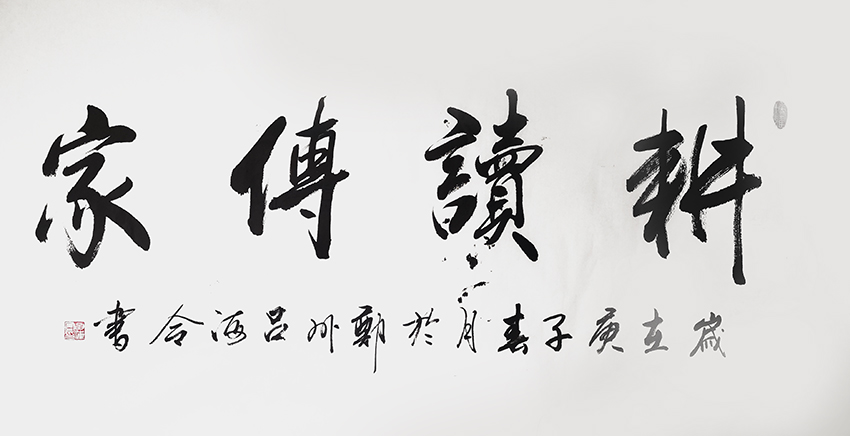 耕讀傳家
歲在庚子春月於鄭州呂海合書